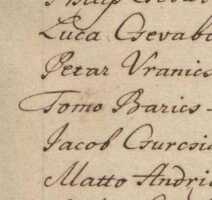 Luca Csevab
Petar Vranics
Tomo Barics -
Jacob Gurcsi
Matto Andri